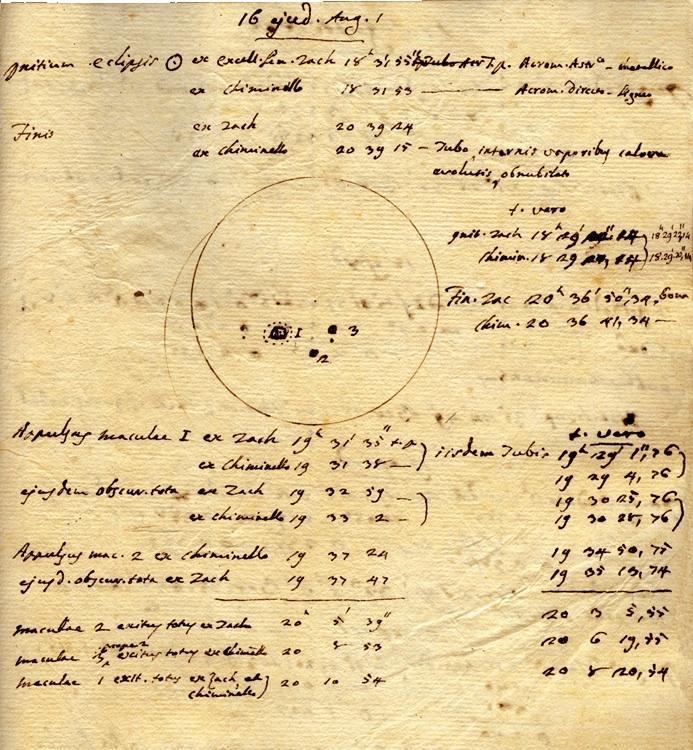 16 ejusd. Aug. 1
Initium eclipsis ☉ ex excell. Zach 18h 31' 55" Acrom. metallico
ex Chiminello 18 31 53 — Acrom. Directo. Ligneo
Finis ex Zach 20 39 24
ex Chiminello 20 39 15 — Tubo internis vaporibus calore
evolutis obnubilato
t. vero
init. Zach 18h 29'
Chimin. 18 29
Fin. Zac 20h 36' 50",34 bona
Chim. 20 36 41,34 —
1 3
2
Appulsus maculae I ex Zach 19h 31' 35" t. p.
ex Chiminello 19 31 38 —
iisdem Tubis
ejusdem obscur. tota ex Zach 19 32 59 —
ex Chiminello 19 33 2 —
t. vero
19h 29' 1",76
19 29 4,76
19 30 25,76
19 30 28,76
Appulsus mac. 2 ex Chiminello 19 37 24 19 34 50,75
ejusd. obscur. tota ex Zach 19 37 47 19 35 13,74
maculae 2 exitus totus ex Zach 20h 5' 39" 20 3 5,55
maculae exitus totus ex Chiminello 20 8 53 20 6 19,55
maculae 1 exit. totus ex Zach et 20 10 54 20 8 20,54
Chiminello